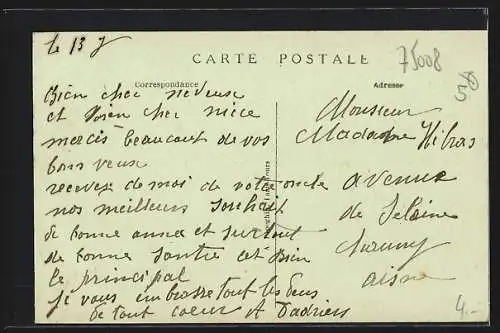 le 13 J
75008
CARTE POSTALE
Correspondance
Adresse
Bien cher neveux
et bien cher niece
mercis beaucout de vos
bons veux
recevese de moi de votre oncle
nos meilleurs souhait
de bonne année et surtout
de bonne santée cet bien
le principal
je vous imbrasse tout les deus
de tout coeur A
Monsieur
Madame
avenue
de
aisne
4.-